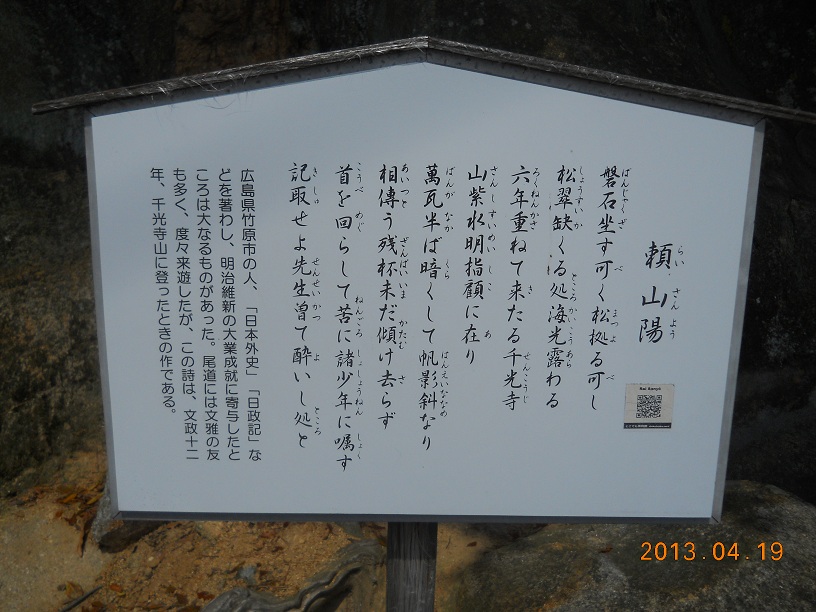 頼山陽
らいさんよう
磐石坐す可く松拠る可し
松翠缺くる処海光露わる
六年重ねて来たる千光寺
山紫水明指顧に在り
萬瓦半ば暗くして帆影斜なり
相傳う残杯未だ傾け去らず
首を回らして苦に諸少年に嘱す
記取せよ先生曽て酔いし処と
広島県竹原市の人、「日本外史」「日政記」な
どを著わし、明治維新の大業成就に寄与したと
ころは大なるものがあった。尾道には文雅の友
も多く、度々来遊したが、この詩は、文政十二
年、千光寺山に登ったときの作である。
Rai Sanyō
2013.04.19